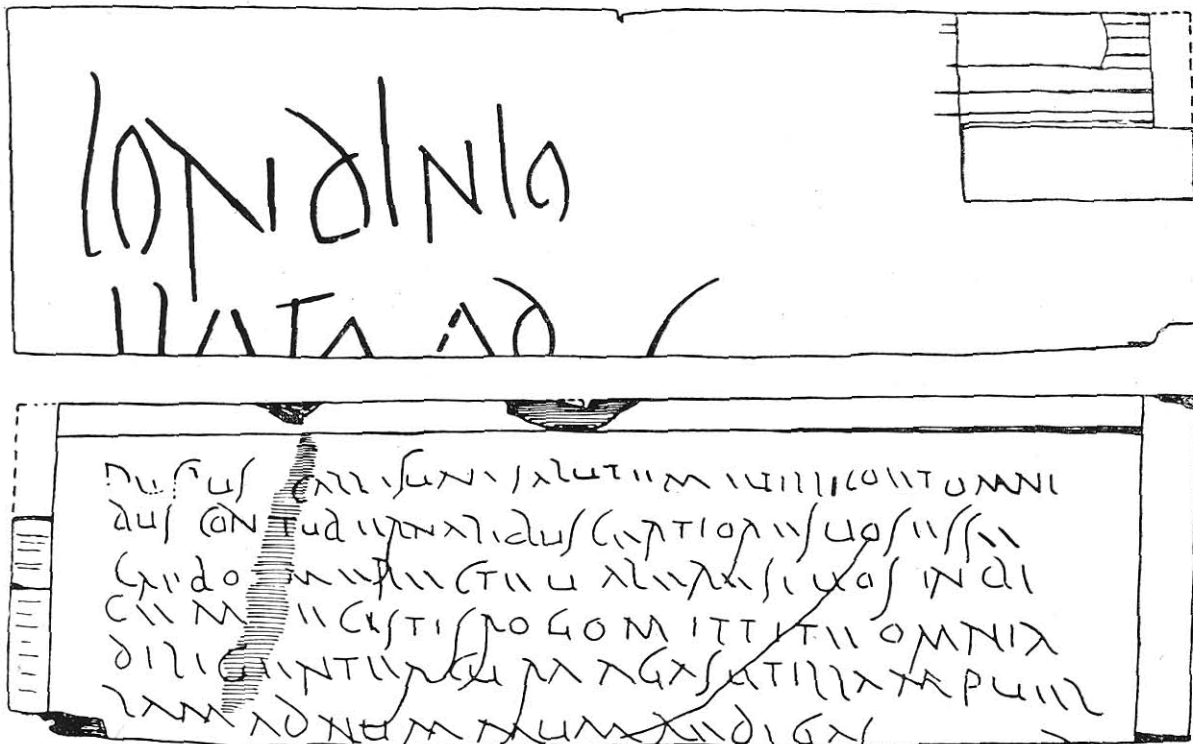 londinio
rufus callisuni salutem epillico et omni
bus contubernalibus certiores uos esse
credo me recte ualere si uos indi
cem fecistis rogo mittite omnia
diligenter cura agas ut illam puel
lam ad nummum redigas